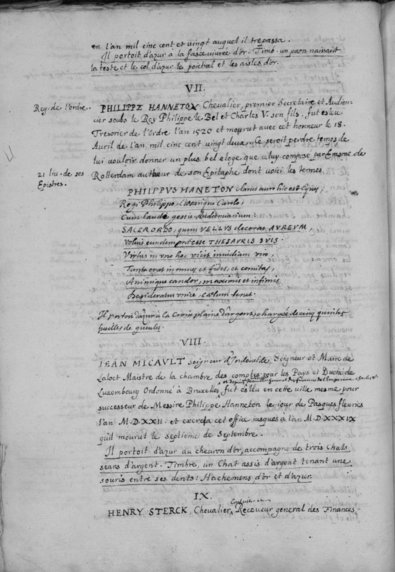 en l'an mil cinc cent et vingt auquel il trepassa.
Il portoit d'azur à la fasce d'or. Timb. un paon naissant
la teste et le col d'azur le poictral et les aisles d'or.
VII.
Reg. de l'ordre.
PHILIPPE HANNETON Chevalier, premier Secretaire et Audien
cier soubs le Roy Philippe le Bel et Charles V. son fils, fut esleu
Tresorier de l'Ordre l'an 1520 et mourut avec cet honneur le 18.
Avril de l'an mil cinc cent vingt deux. Ce seroit perdre temps de
luy vouloir donner un plus bel eloge, que celuy composé par Erasme de
21 liv. de ses
Epistres.
Rotterdam autheur de son Epitaphe, dont voicy les termes.
PHILIPPUS HANETON clarus auro hic est Eques
Regi Philippo, Carolo,
Cum laude gessit Audientiarium
SACER ORDO, quem VELLUS decorat AUREUM
Voluit eundem praeesse THESAURIS SUIS.
Virtus in uno hoc vicit invidiam viro.
Tanta erat in omnes et fides, et comitas,
Animique candor, maximis et infimis
Desideratum unice coelum tenet.
Il portoit d'azur à la Croix plaine d'argent, chargée de cinq quintes
fueilles de gueules.
VIII.
JEAN MICAULT Seigneur d'Indevelde, Seigneur et Maire de
Maistre de la chambre des comptes pour les Pays et Duché de
Luxembourg Ordonné à Bruxelles, fut esleu en cette ville mesme pour
successeur de Messire Philippe Hanneton le jour de Pasques fleuries
l'an M.D.XXII. et exerça cet office jusques à l'an M.D.XXXIX
qu'il mourut le septiesme de Septembre.
Il portoit d'azur au chevron d'or, accompagné de trois Chats
seans d'argent. Timbre, un Chat assis d'argent tenant une
souris entre ses dents: Hachemens d'or et d'azur.
IX.
HENRY STERCK Chevalier, Receveur general des Finances,